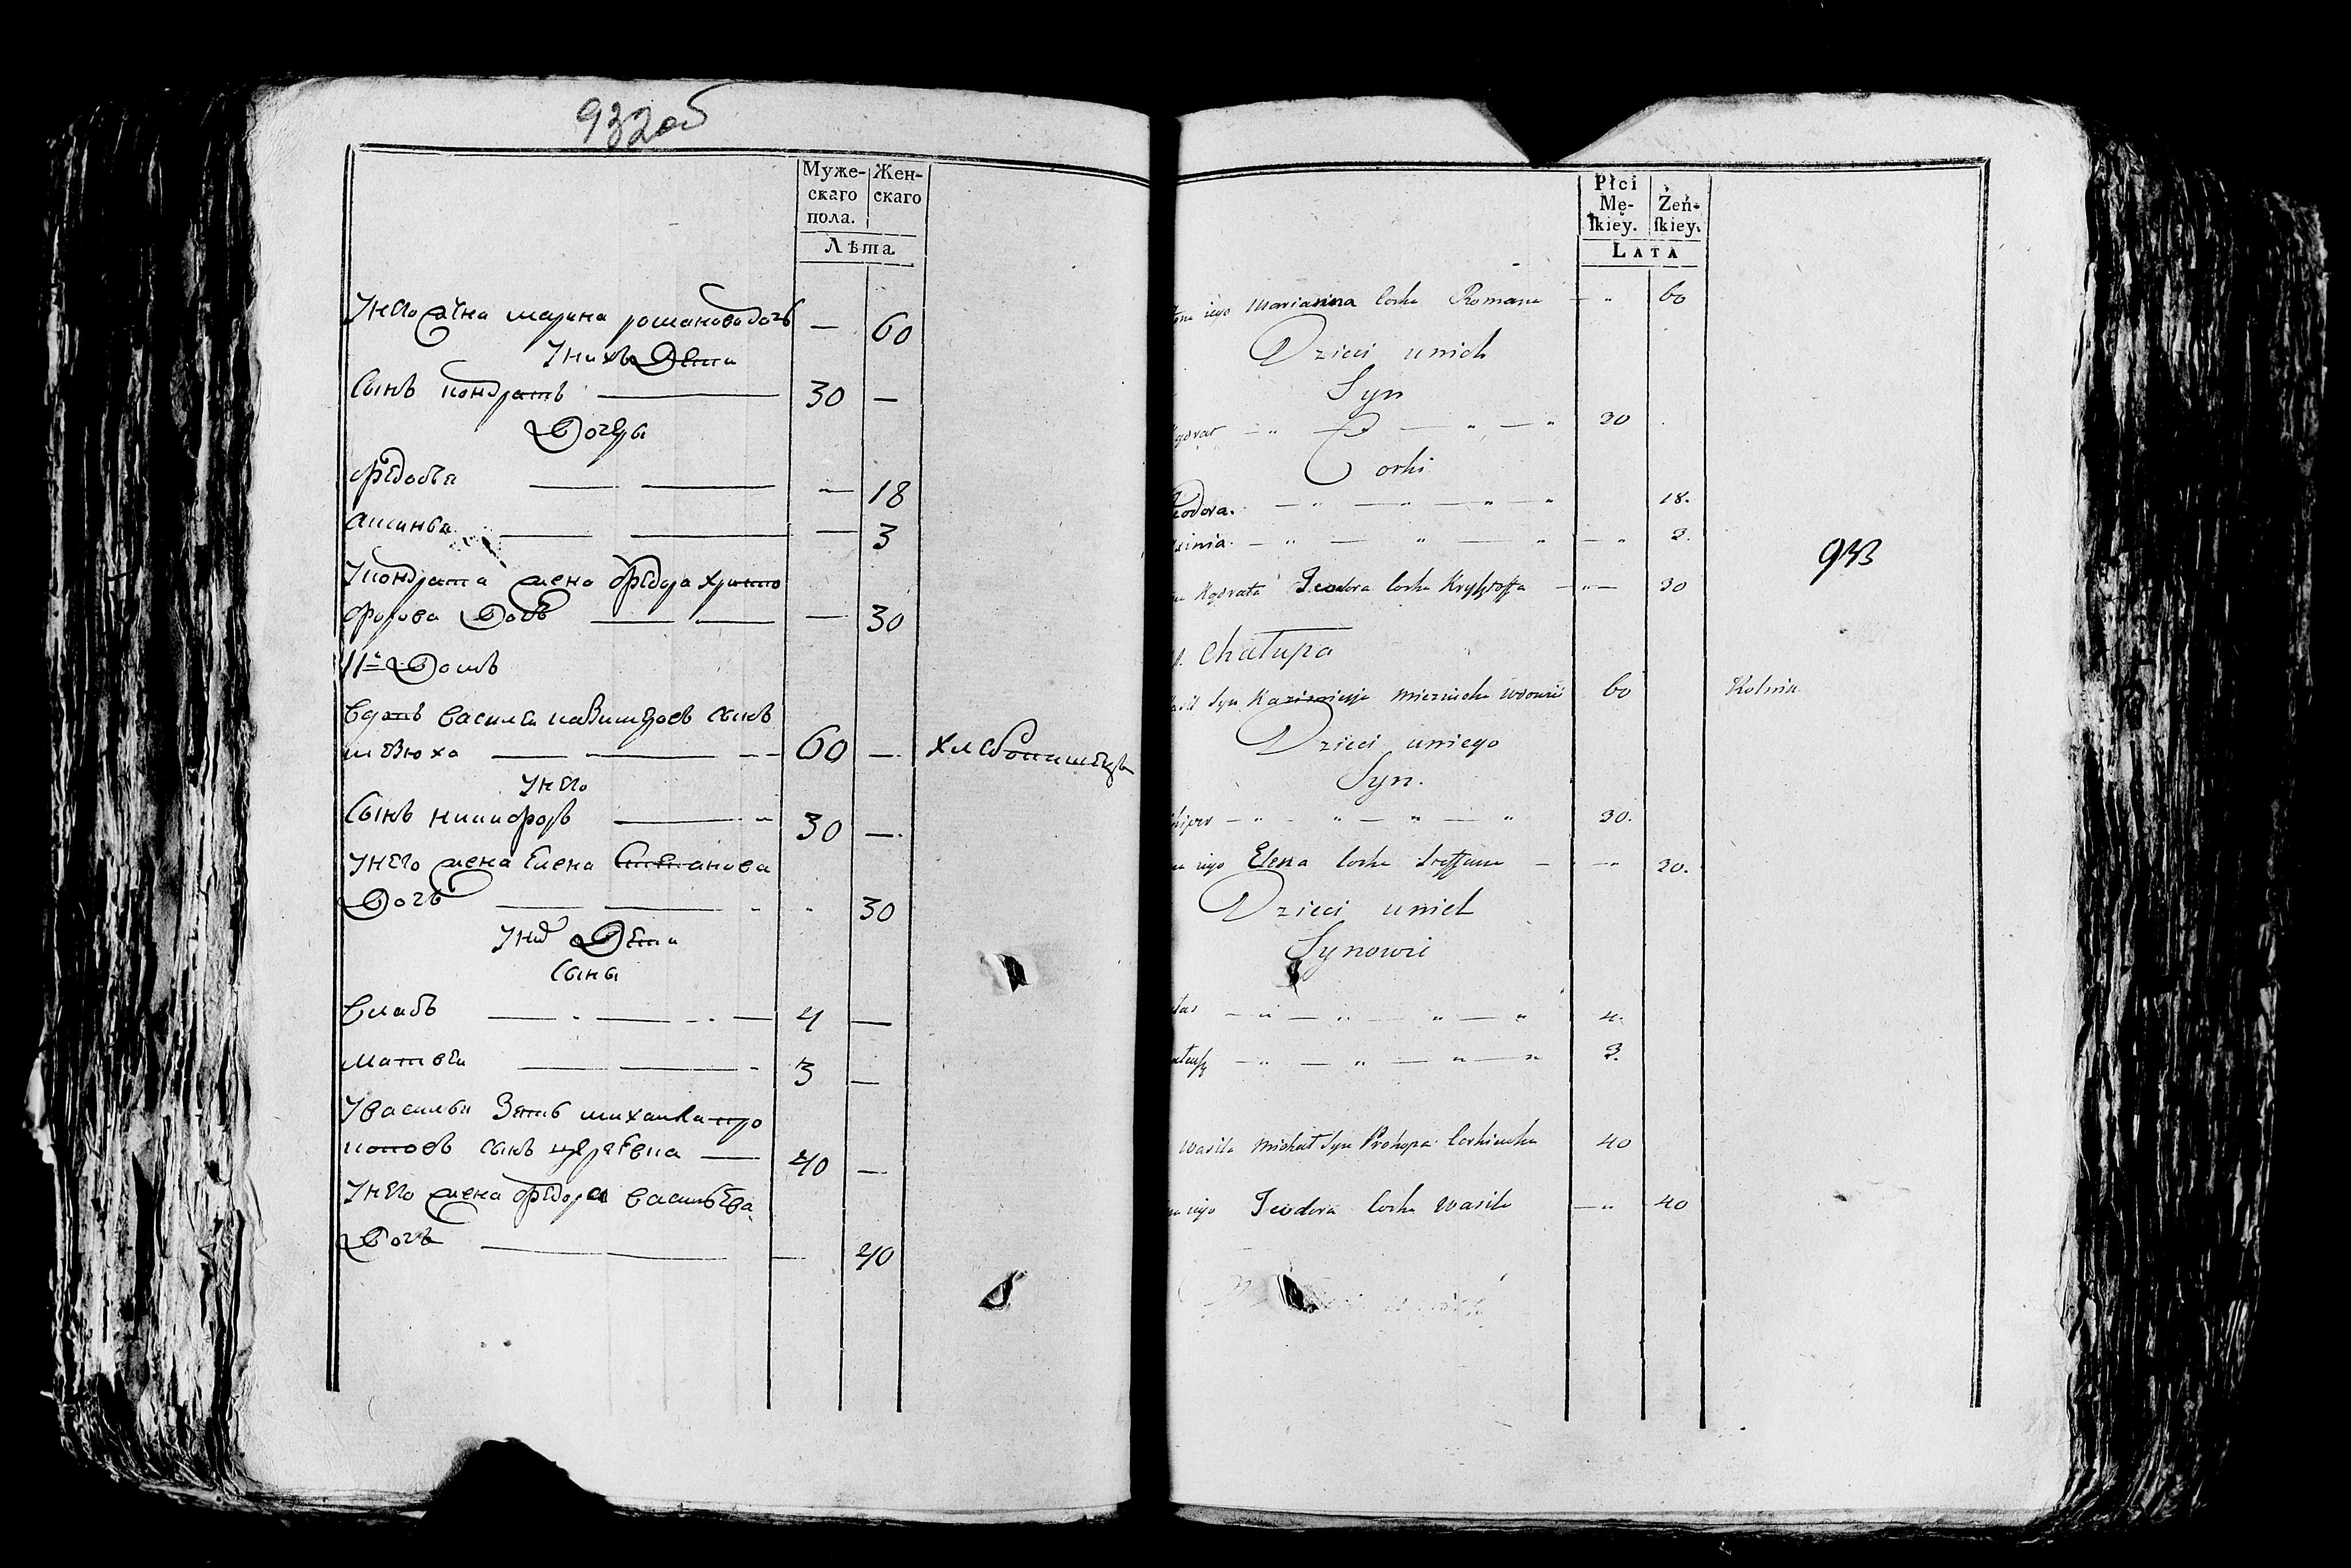 932об
Муже- Жен-
скаго скаго
пола.
Лѣта
У него жена марина романова дочь — 60
У нихъ Дети
Сынъ кондратъ 30 —
Дочери
федосья — 18
аксинья — 3
У кондрата жена федора христо
форова Дочь — 30
11й Домъ
Вдовъ василей казимеровъ сынъ
мѣзюха 60 — хлебопашецъ
У него
Сынъ никифоръ 30 —
У него жена Елена Степанова
Дочь 30
У них Дети
Сыны
Власъ 4 —
матвей 3 —
У василья Зять михайла про
коповъ сынъ 40 —
У него жена федора васильева
Дочь — 40
Płci
Mę- Żeń-
skiey. skiey.
LATA
żona iego Marianna Corka Romana — 60
Dzieci u nich
Syn
30
Corki
Teodora. 18.
3.
Kąd­rata Teodora Corka Krysztoffa — 30
Chałupa
Syn Kazimierza 60 Rolnik
Dzieci u niego
Syn.
30.
iego Elena Corka Steffana — 30.
Dzieci u nich
Synowie
4.
3.
Wasila Michał Syn Prokopa 40
iego Teodora Corka Wasila — 40
933